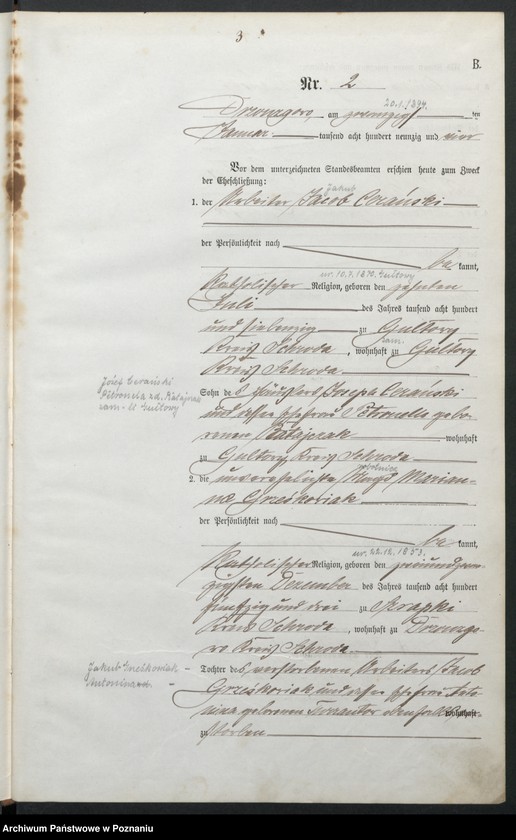 3
B.
Nr. 2
20.1.1894.
Drzonzgowo am zwanzigsten
Januar tausend acht hundert neunzig und vier
Vor dem unterzeichneten Standesbeamten erschien heute zum Zweck
der Eheschließung:
Jakub
1. der Arbeiter Jacob Cerański
der Persönlichkeit nach
be kannt,
ur. 10.7.1870. Gułtowy
Katholischer Religion, geboren den zehnten
Juli des Jahres tausend acht hundert
und siebenzig zu Gultowy
zam.
Kreis Schroda, wohnhaft zu Gultowy
Kreis Schroda.
Józef Cerański
Petronela zd. Ratajczak
zam. w Gułtowy
Sohn des Häuslers Joseph Cerański
und dessen Ehefrau Petronella gebo-
renen Ratajczak wohnhaft
zu Gultowy Kreis Schroda
robotnica
2. die unverehelichte Magd Marian-
na Grześkowiak
der Persönlichkeit nach
be kannt,
ur. 22.12.1853.
Katholischer Religion, geboren den zweiundzwan-
zigsten Dezember des Jahres tausend acht hundert
fünfzig und drei zu
Kreis Schroda, wohnhaft zu Drzonzgo-
wo Kreis Schroda.
Jakub Grześkowiak
Antonina
Tochter des verstorbenen Arbeiters Jacob
Grześkowiak und dessen Ehefrau Anto-
nina geborenen ebenfalls ver- wohnhaft
zu storben
Archiwum Państwowe w Poznaniu